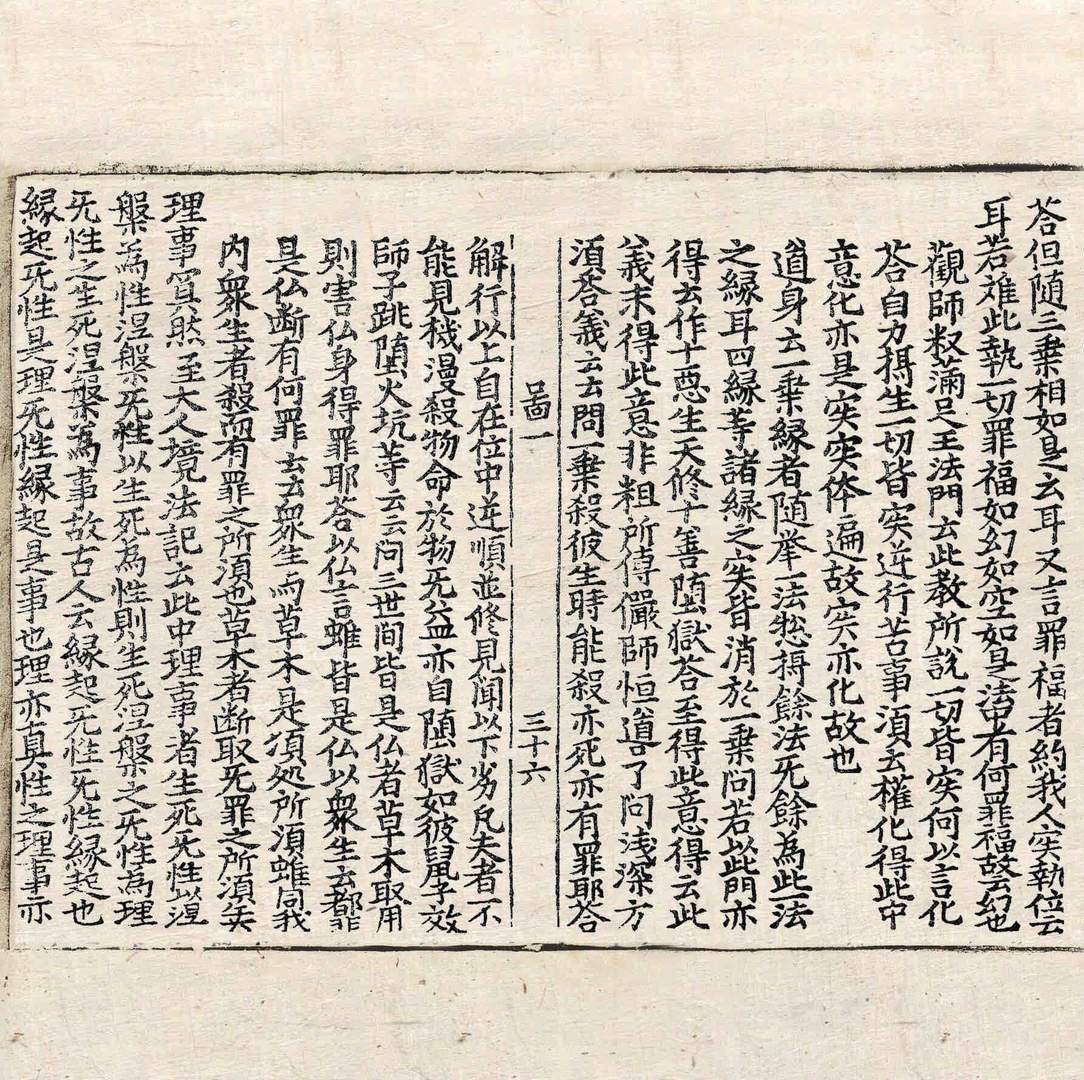 答但随三乗相如是云耳又言罪福者約我人实執位云
耳若难此執一切罪福如幻如空如是法中者有何罪福故云幻也
觀師釈薾足王法門云此教所說一切皆实何以言化
答自力得生一切皆实逆行苦事湏云權化得此中
意化亦是实实体遍故实亦化故也
道身云一乗縁者随举一法揔得餘法无餘為此一法
之縁耳四縁等諸縁之实皆消於一乗问若以此門亦
得云作十惡生天修十善堕獄答至得此意得云此
義未得此意非粗所傳儼師恒噵了问浅深方
湏答義云云問一乗殺彼生時能殺亦死亦有罪耶答
吕啚一 三十六
解行以上自在位中逆順並修見聞以下劣凡夫者不
能見機漫殺物命於物无益亦自堕獄如彼鼠子效
師子跳堕火坑等云云问三世间皆是仏者草木取用
則害仏身得罪耶答以仏言雖皆是仏以衆生云都非
是仏断有何罪云云衆生与草木是湏処所湏雖同我
内衆生者殺而有罪之所湏也草木者断取无罪之所湏矣
理事冥然至大人境见法記云此中理事者生死无性以涅
槃為性涅槃无性以生死為性則生死涅槃之无性為理
无性之生死涅槃為事故古人云縁起无性无性縁起也
縁起无性是理无性縁起是事也理亦真性之理事亦